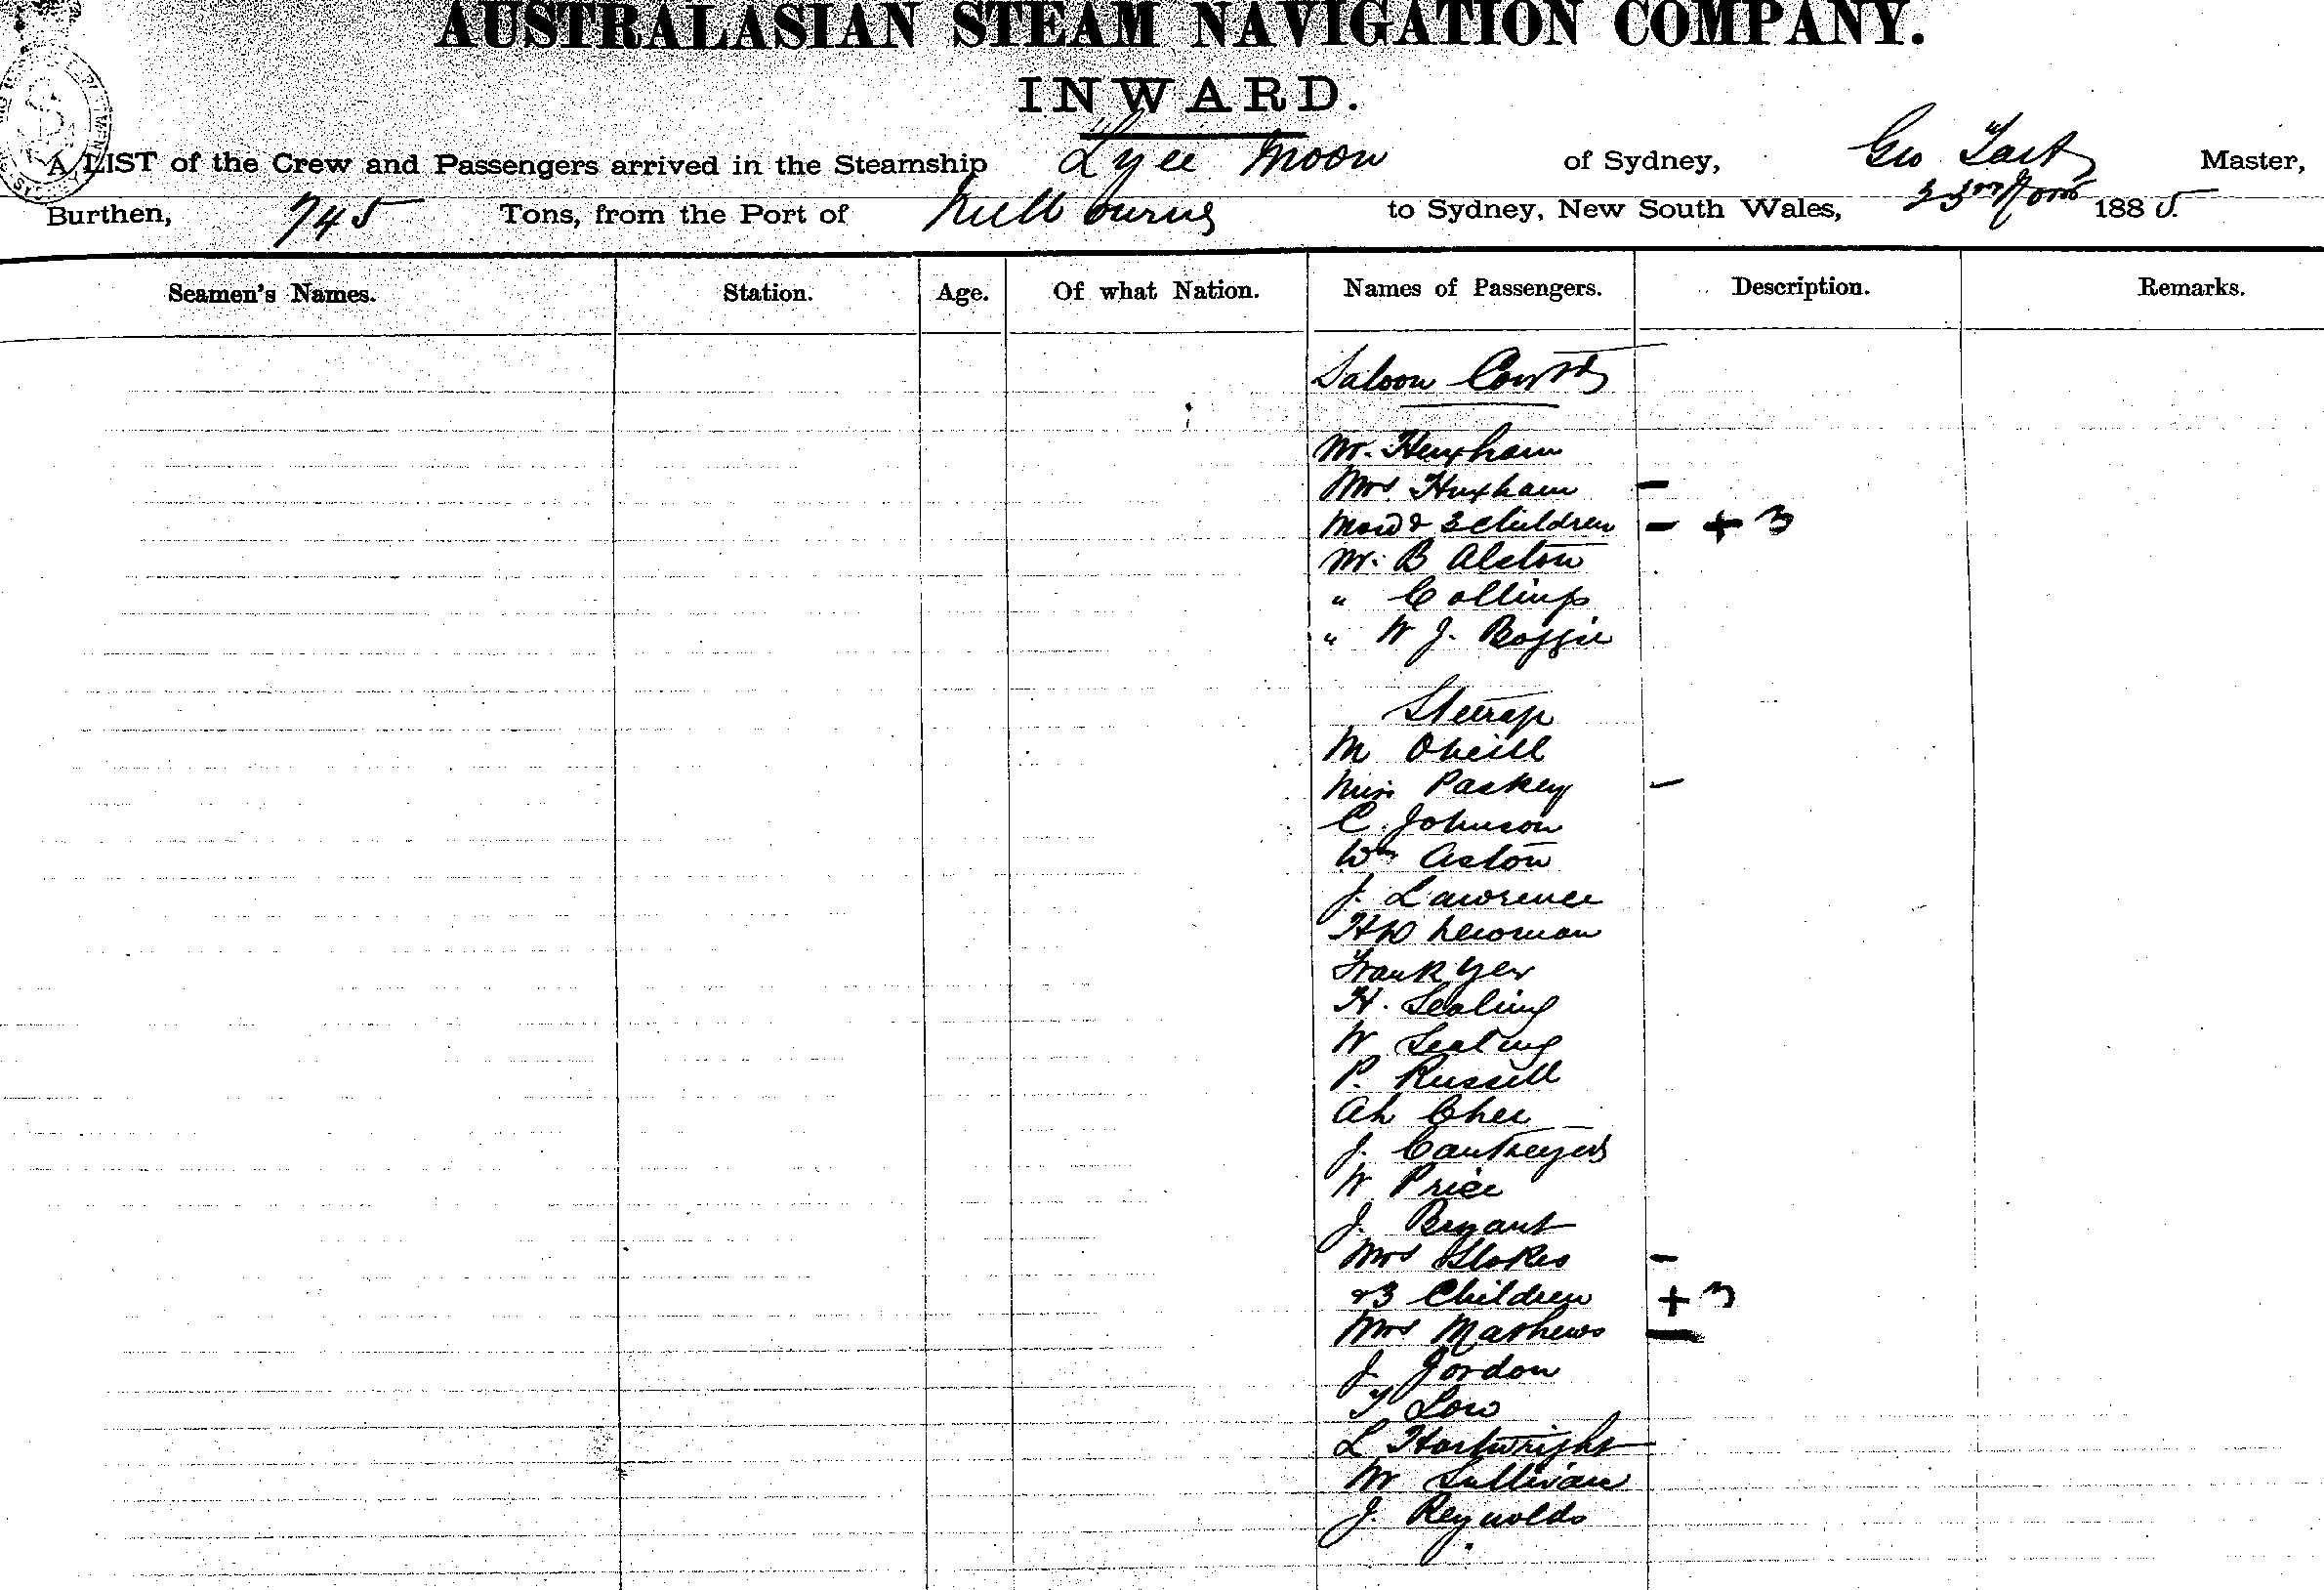 AUSTRALASIAN STEAM NAVIGATION COMPANY.
INWARD.
A LIST of the Crew and Passengers arrived in the Steamship Lyee Moon of Sydney, Geo Master,
Burthen, 745 Tons, from the Port of Melbourne to Sydney, New South Wales, 23rd Novr 1885
Seamen's Names. Station. Age. Of what Nation. Names of Passengers. Description. Remarks.
Saloon
Mr. Huxham
Mrs Huxham -
Maid & 3 children - + 3
Mr. B Alston
" Collings
" W J. Boggie
Steerage
M ONeill
Miss Paskey -
C. Johnson
Wm Aston
J. Lawrence
H W Newman
Frank Yer
H. Sealing
W Sealing
P. Russell
Ah Chee
J.
W Price
J. Bryant
Mrs Stokes -
& 3 Children + 3
Mrs Mathews -
J. Jordon
T Low
L Hartwright
Mr Sullivan
J. Reynolds